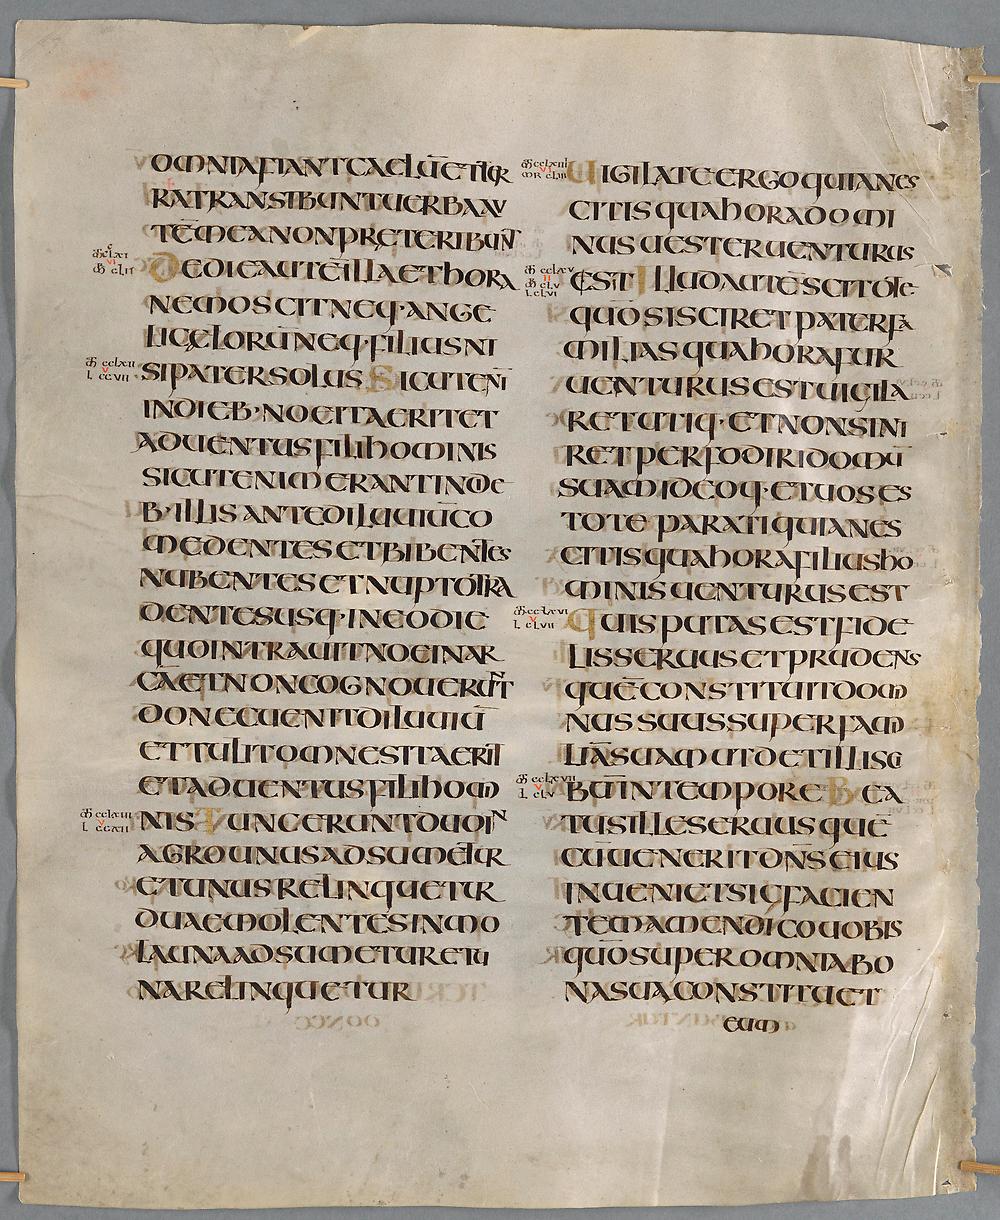 OMNIAFIANTCAELŪETTER
RATRANSIBUNTUERBAAU
TĒMEANONPRETERIBUNT
DEDIEAUTĒILLAETHORA
NEMOSCITNEQ·ANGE
LICAELORŪNEQ·FILIUSNI
SIPATERSOLUS SICUTENĪ
INDIEB·NOEITAERITET
ADUENTUSFILIIHOMINIS
SICUTENIMERANTINDIE
B·ILLISANTEDILUUIŪCO
MEDENTESETBIBENTES
NUBENTESETNUPTŌTRA
DENTESUSQ·INEŌDIĒ
QUOINTRAUITNOEINAR
CAETNONCOGNOUERUNT
DONECUENITDILUUIŪ
ETTULITOMNESITAERIT
ETADUENTUSFILIIHOMI
NIS TUNCERUNTDUOIN
AGROUNUSADSUMETUR
ETUNUSRELINQUETUR
DUAEMOLENTESINMO
LAUNAADSUMETURETU
NARELINQUETUR
UIGILATEERGOQUIANES
CITISQUAHORADOMI
NUSUESTERUENTURUS
EST ILLUDAUTĒSCITOTE
QUŌSISCIRETPATERFA
MILIASQUAHORAFUR
UENTURUSESTUIGILA
RETUTIQ·ETNONSINI
RETPERFODIRIDOMŪ
SUAMIDEOQ·ETUOSES
TOTE PARATIQUIANES
CITISQUAHORAFILIUSHO
MINISUENTURUSEST
QUISPUTASESTFIDE
LISSERUUSETPRUDENS
QUĒCONSTITUITDOMI
NUSSUUSSUPERFAMI
LIĀSUAMUTDETILLISCI
BŪINTEMPORE BEA
TUSILLESERUUSQUĒ
CŪUENERITDN̄SEIUS
INUENIETSICFACIEN
TEMAMENDICOUOBIS
QUŌSUPEROMNIABO
NASUACONSTITUET
EUM